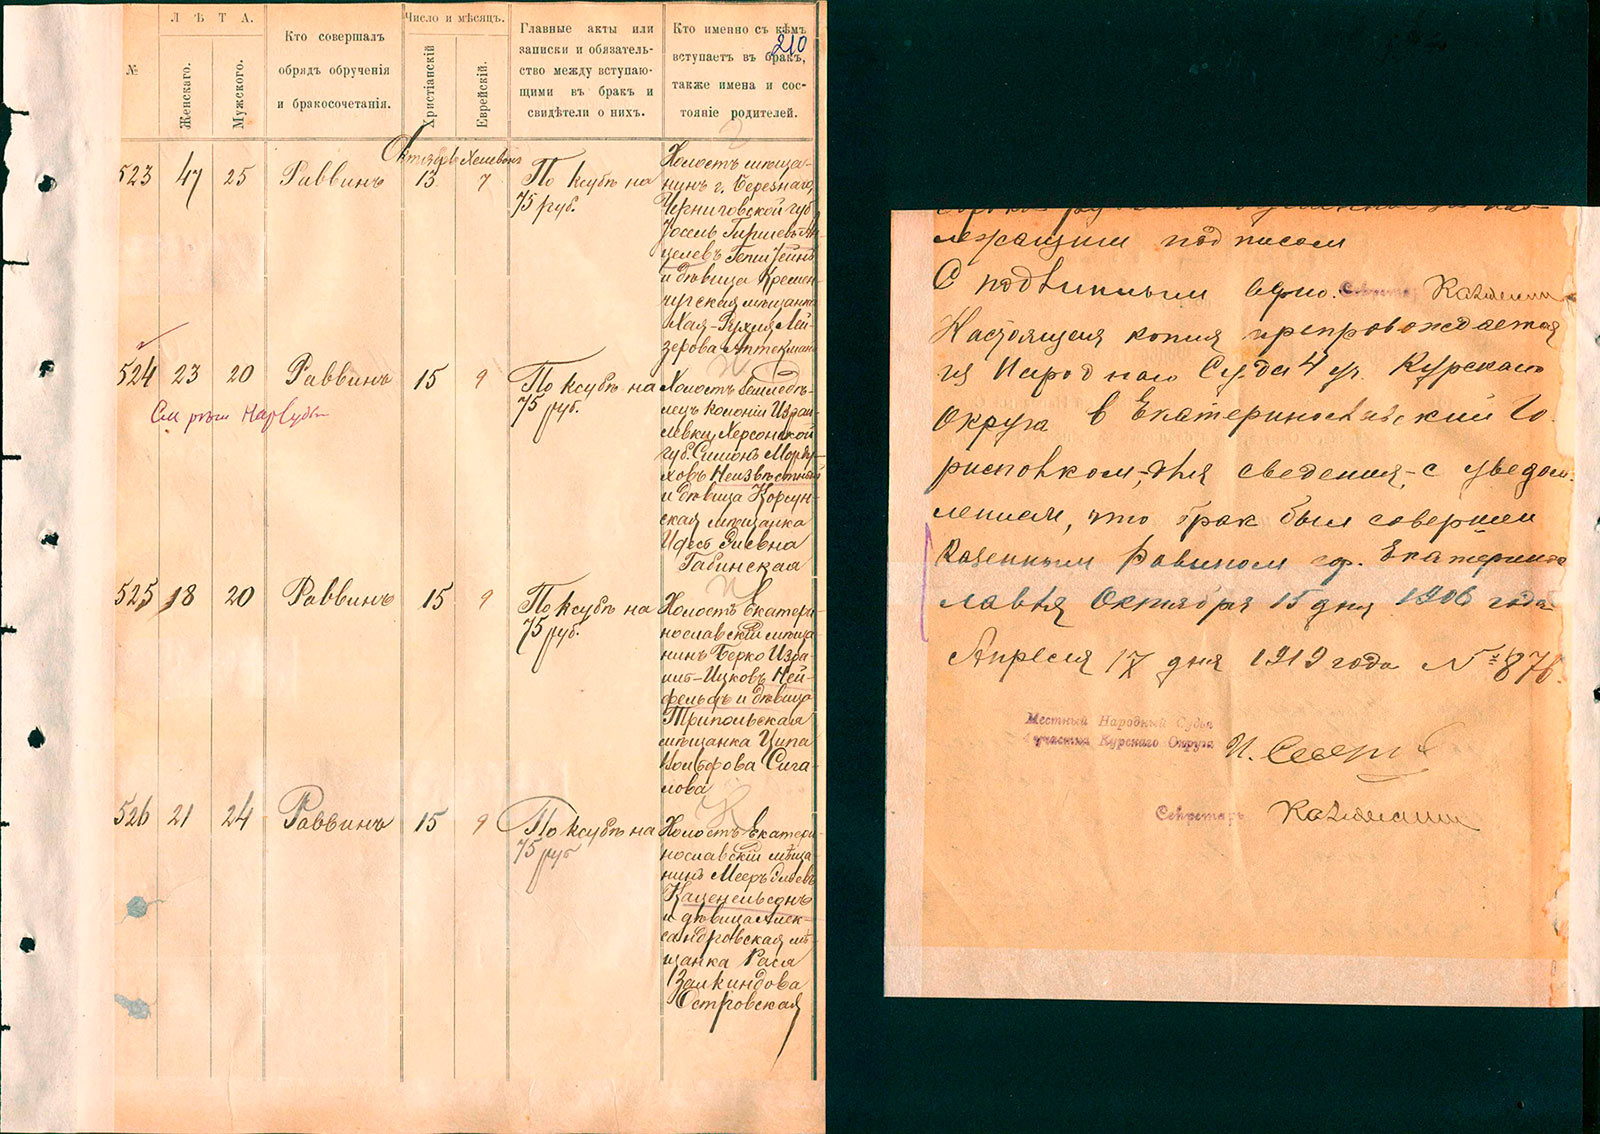 210
Л Ѣ Т А.
Число и мѣсяцъ.
№
Женскаго.
Мужского.
Кто совершалъ
обрядъ обрученія
и бракосочетанія.
Христіанскій
Еврейскій.
Главные акты или
записки и обязатель-
ство между вступаю-
щими въ бракъ и
свидѣтели о нихъ.
Кто именно съ кѣмъ
вступаетъ въ бракъ,
также имена и сос-
тояніе родителей.
Октябрь Хешвонъ
523 47 25 Раввинъ 13 7
По ксубѣ на
75 руб.
Холостъ мѣща-
нинъ г. Березнаго,
Черниговской губ.
Іосель Гиршевъ-
и дѣвица Кремен-
чугская мѣщанка
Хая-Рухля Лей-
зерова Аптекман
524 23 20 Раввинъ 15 9
См рѣш НарСуда
По ксубѣ на
75 руб.
Холостъ Землед-
лецъ колоніи Израи-
левки, Херсонской
губ. Симонъ Морду-
ховъ Неизвѣстный
и дѣвица Корсун-
ская мѣщанка
Идесъ Эліевна
Табинская
525 18 20 Раввинъ 15 9
По ксубѣ на
75 руб.
Холостъ Екатери-
нославскій мѣща-
нинъ Берко Изра-
ил-Ицковъ Ней-
фельдъ и дѣвица
Трипольская
мѣщанка Ципа
Вольфова Сига-
лова
526 21 24 Раввинъ 15 9
По ксубѣ на
75 руб
Холостъ Екатери-
нославскій мѣща-
нинъ Мееръ
Каценельсонъ
и дѣвица Алек-
сандровская мѣ-
щанка Рася
Залкиндова
Островская
лежащим подписом
С подлинным верно. Секретарь
Настоящая копия препровождается
из Народнаго Суда 4 уч Курскаго
Округа в Екатеринославский Го-
рисполком, для сведения, с уведом-
лением, что брак был совершен
Казенным Равином гор. Екатерино-
славля Октября 15 дня 1906 года
Апреля 17 дня 1919 года № 876.
Местный Народный Судья
4 участка Курскаго Округа
Секретарь